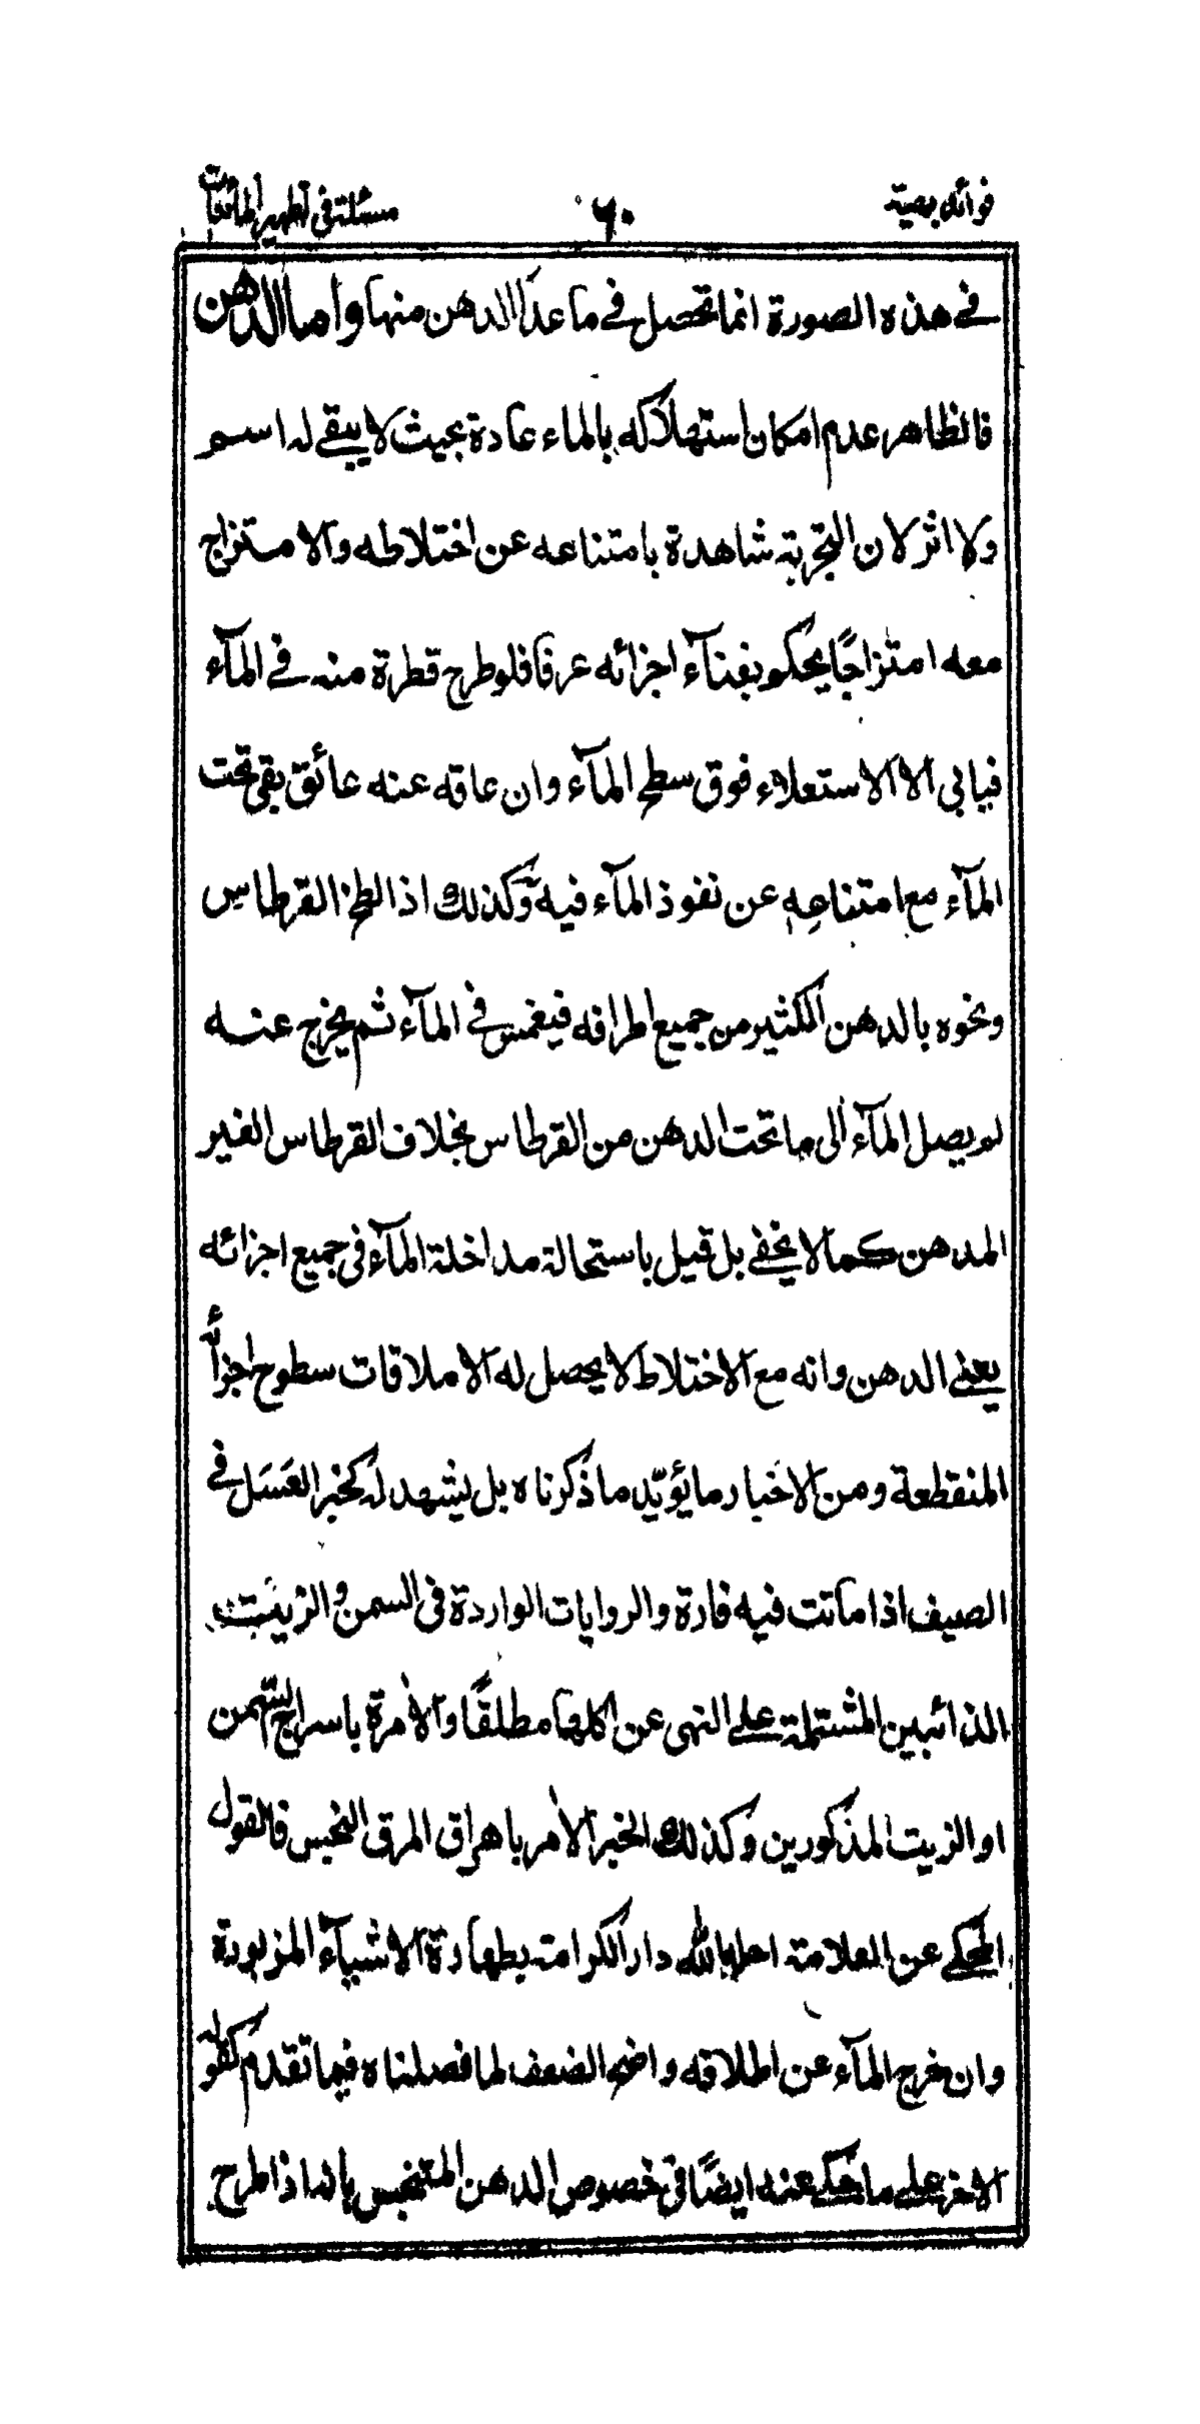 فوائد بهية ٦٠ مسئلة فى تطهير المائعات
فى هذه الصورة انما تحصل فى ما عدا الدهن منها واما الدهن
فالظاهر عدم امكان استهلاكه بالماء عادة بحيث لا يبقى له اسم
ولا اثر لان التجربة شاهدة بامتناعه عن اختلاطه والامتزاج
معه امتزاجًا يحكم بفنآء اجزائه عرفا فلو طرح قطرة منه فى المآء
فيابى الا الاستعلاء فوق سطح المآء وان عاقه عنه عائق بقى تحت
المآء مع امتناعه عن نفوذ المآء فيه وكذلك اذا لطخ القرطاس
ونحوه بالدهن الكثير من جميع اطرافه فيغمس فى المآء ثم يخرج عنه
لم يصل المآء الى ما تحت الدهن من القرطاس بخلاف القرطاس الغير
المدهن كما لا يخفى بل قيل باستحالة مداخلة المآء فى جميع اجزائه
يعنى الدهن وانه مع الاختلاط لا يحصل له الا ملاقات سطوح اجزائه
المنقطعة ومن الاخبار ما يؤيّد ما ذكرناه بل يشهد له كخبر العَسَل فى
الصيف اذا ماتت فيه فارة والروايات الواردة فى السمن والزيت
الذائبين المشتملة على النهى عن اكلها مطلقًا والأمرة باسراج السّمن
او الزيت المذكورين وكذلك الخبر الأمر باهراق المرق النجس فالقول
المحكى عن العلامة احله الله دار الكرامة بطهارة الاشيآء المزبورة
وان خرج المآء عن اطلاقه واضح الضعف لما فصلناه فيما تقدم كقوله
الاخر على ما حكى عنه ايضًا فى خصوص الدهن المتنجس بانه اذا طرح